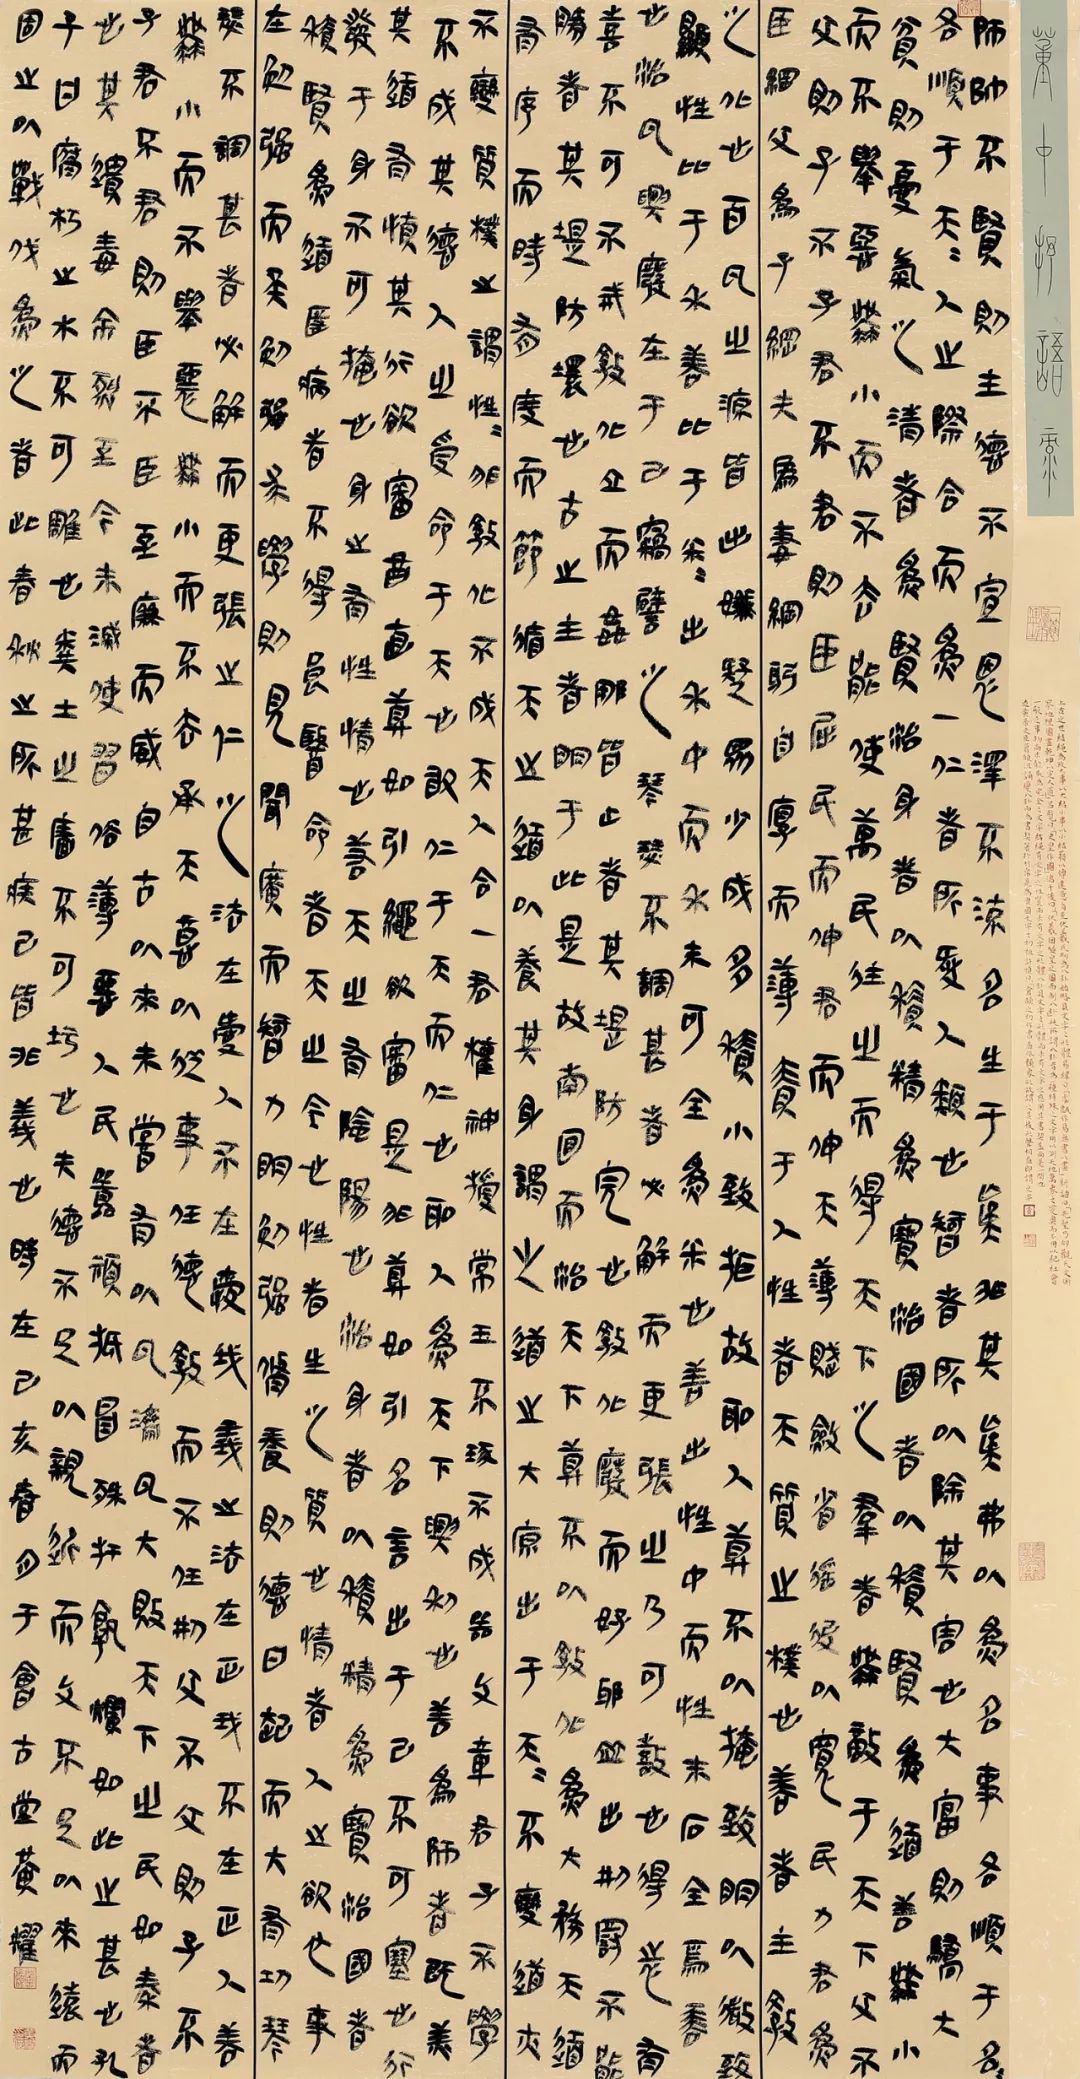 董中抒語录
師帥不賢則主德不宣恩澤不流名生于真非其真弗以爲名事各順于名=
各順于天=人之際合而爲一仁者所以愛人類也智者所以除其害也大富則驕大
貧則憂氣之清者爲賢治身者以積精爲寶治國者以積賢爲道善無小
而不舉惡無小而不去能使萬民往之而得天下之羣者無敵于天下父不
父則子不子君不君則臣屈民而伸君而伸天薄賦斂省徭役以寬民力君爲
臣綱父爲子綱夫爲妻綱躬自厚而薄責于人性者天質之樸也善者主教
之化也百亂之源皆出嫌疑易少成多積小致拒故聖人莫不以掩致明以微致
顯性比于禾善比于米=出禾中而禾未可全爲米也善出性中而性未可全爲善
也治亂興廢在于己竊譬之琴瑟不調甚者必解而更張之乃可鼓也得志有
喜不可不戒教化立而姦邪皆止者其堤防完也教化廢而奸邪並出刑罰不能
勝者其堤防壞也古之王者明于此是故南面而治天下莫不以教化爲大務天道
有序而時有度而節循天之道以養其身謂之道之大原出于天=不變道亦
不變質樸之謂性=非教化不成天人合一君權神授常玉不琢不成器文章君子不學
不成其德人之受命于天也取仁于天而仁也聖人爲天下興利也善爲師者既美
其道有慎其行欲審曲直莫如引繩欲審是非莫如引名言出于己不可塞也行
發于身不可掩也身之有性情也若天之有陰陽也治身者以積精爲寶治國者
積賢爲道匿病者不得良醫命者天之令也性者生之質也情者人之欲也事
在勉强而矣勉强爲學則見聞廣而智力明勉强脩養則德日起而大有功琴
瑟不調甚者必解而更張之仁之法在愛人不在愛我義之法在正我不在正人善
無小而不舉惡無小而不去承天意以從事任德教而不任刑父不父則子不
子君不君則臣不臣至廉而威自古以來未嘗有以亂濟亂大敗天下之民如秦者
也其遺毒余烈至今未滅使習俗薄惡人民囂頑抵冒殊扞孰爛如此之甚也孔
子曰腐朽之木不可雕也糞土之牆不可圬也夫德不足以親近而文不足以來遠而
固之以戰伐爲之者此春秋之所甚疾已皆非義也時在己亥春月于會古堂黃耀